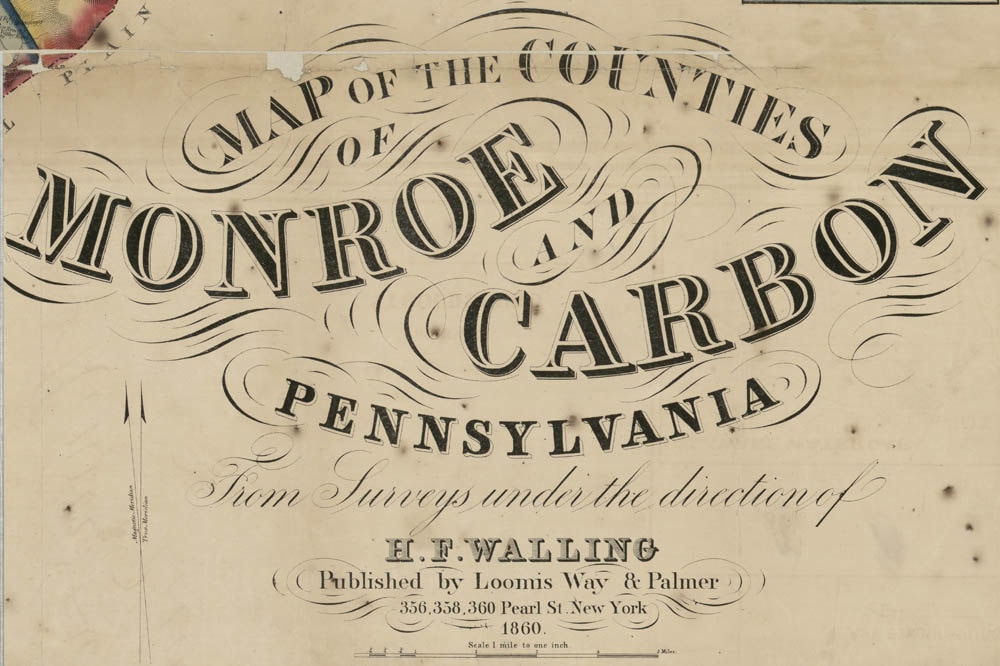 PLAIN
MAP OF THE COUNTIES
OF
MONROE
AND
CARBON
PENNSYLVANIA
From Surveys under the direction of
H.F.WALLING
Published by Loomis Way & Palmer
356,358,360 Pearl St. New York
1860.
Scale 1 mile to one inch.
Miles.
Magnetic Meridian
True Meridian